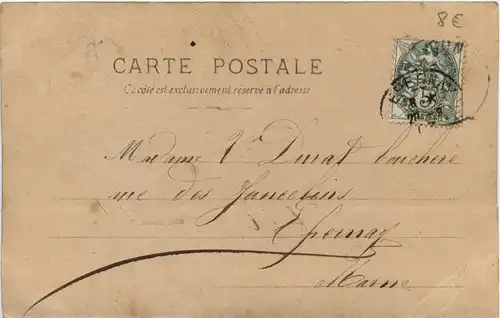 8€
CARTE POSTALE
Ce côté est exclusivement réservé à l'adresse
Madame Duval bouchère
rue des Jancelins
Epernay
Marne